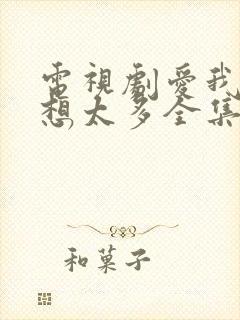 電視劇愛我
想太多全集
和菓子